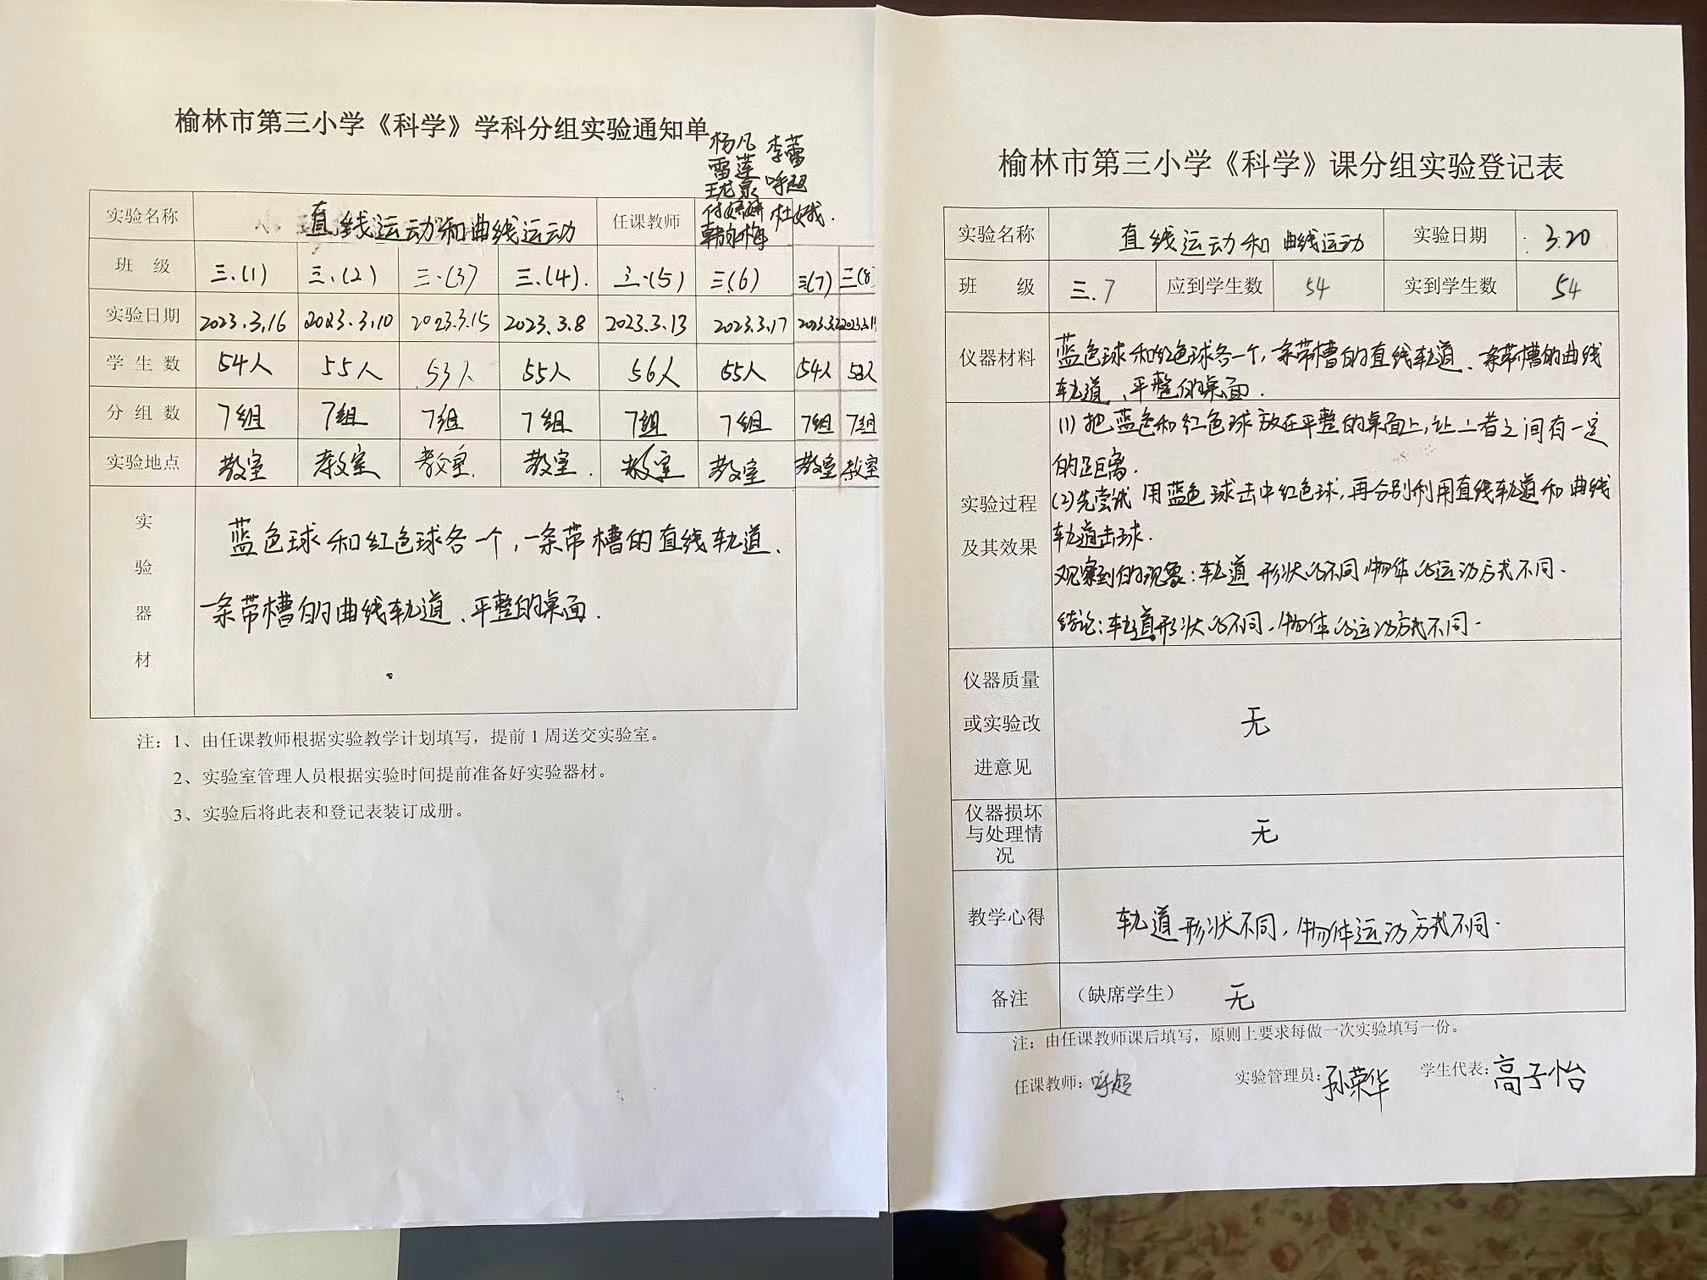 榆林市第三小学《科学》学科分组实验通知单
杨凡 李蕾
雷莲 呼超
实验名称 直线运动和曲线运动 任课教师
班 级 三.(1) 三.(2) 三.(3) 三.(4). 三.(5) 三(6) 三(7) 三(8)
实验日期 2023.3.16 2023.3.10 2023.3.15 2023.3.8 2023.3.13 2023.3.17
学 生 数 54人 55人 53人 55人 56人 55人 54人 53人
分 组 数 7组 7组 7组 7组 7组 7组 7组 7组
实验地点 教室 教室 教室. 教室. 教室 教室 教室 教室
实验器材
蓝色球和红色球各一个,一条带槽的直线轨道、
一条带槽的曲线轨道、平整的桌面.
注：1、由任课教师根据实验教学计划填写，提前1周送交实验室。
2、实验室管理人员根据实验时间提前准备好实验器材。
3、实验后将此表和登记表装订成册。
榆林市第三小学《科学》课分组实验登记表
实验名称 直线运动和曲线运动 实验日期 3.20
班 级 三.7 应到学生数 54 实到学生数 54
仪器材料 蓝色球和红色球各一个,一条带槽的直线轨道、一条带槽的曲线
轨道、平整的桌面.
实验过程及其效果
(1)把蓝色和红色球放在平整的桌面上,让二者之间有一定
的距离.
(2)先尝试用蓝色球击中红色球,再分别利用直线轨道和曲线
轨道击球.
观察到的现象:轨道形状的不同物体的运动方式不同.
结论:轨道形状的不同,物体的运动方式不同.
仪器质量或实验改进意见 无
仪器损坏与处理情况 无
教学心得 轨道形状不同,物体运动方式不同.
备注 （缺席学生） 无
注：由任课教师课后填写，原则上要求每做一次实验填写一份。
任课教师：呼超 实验管理员：孙荣华 学生代表：高子怡